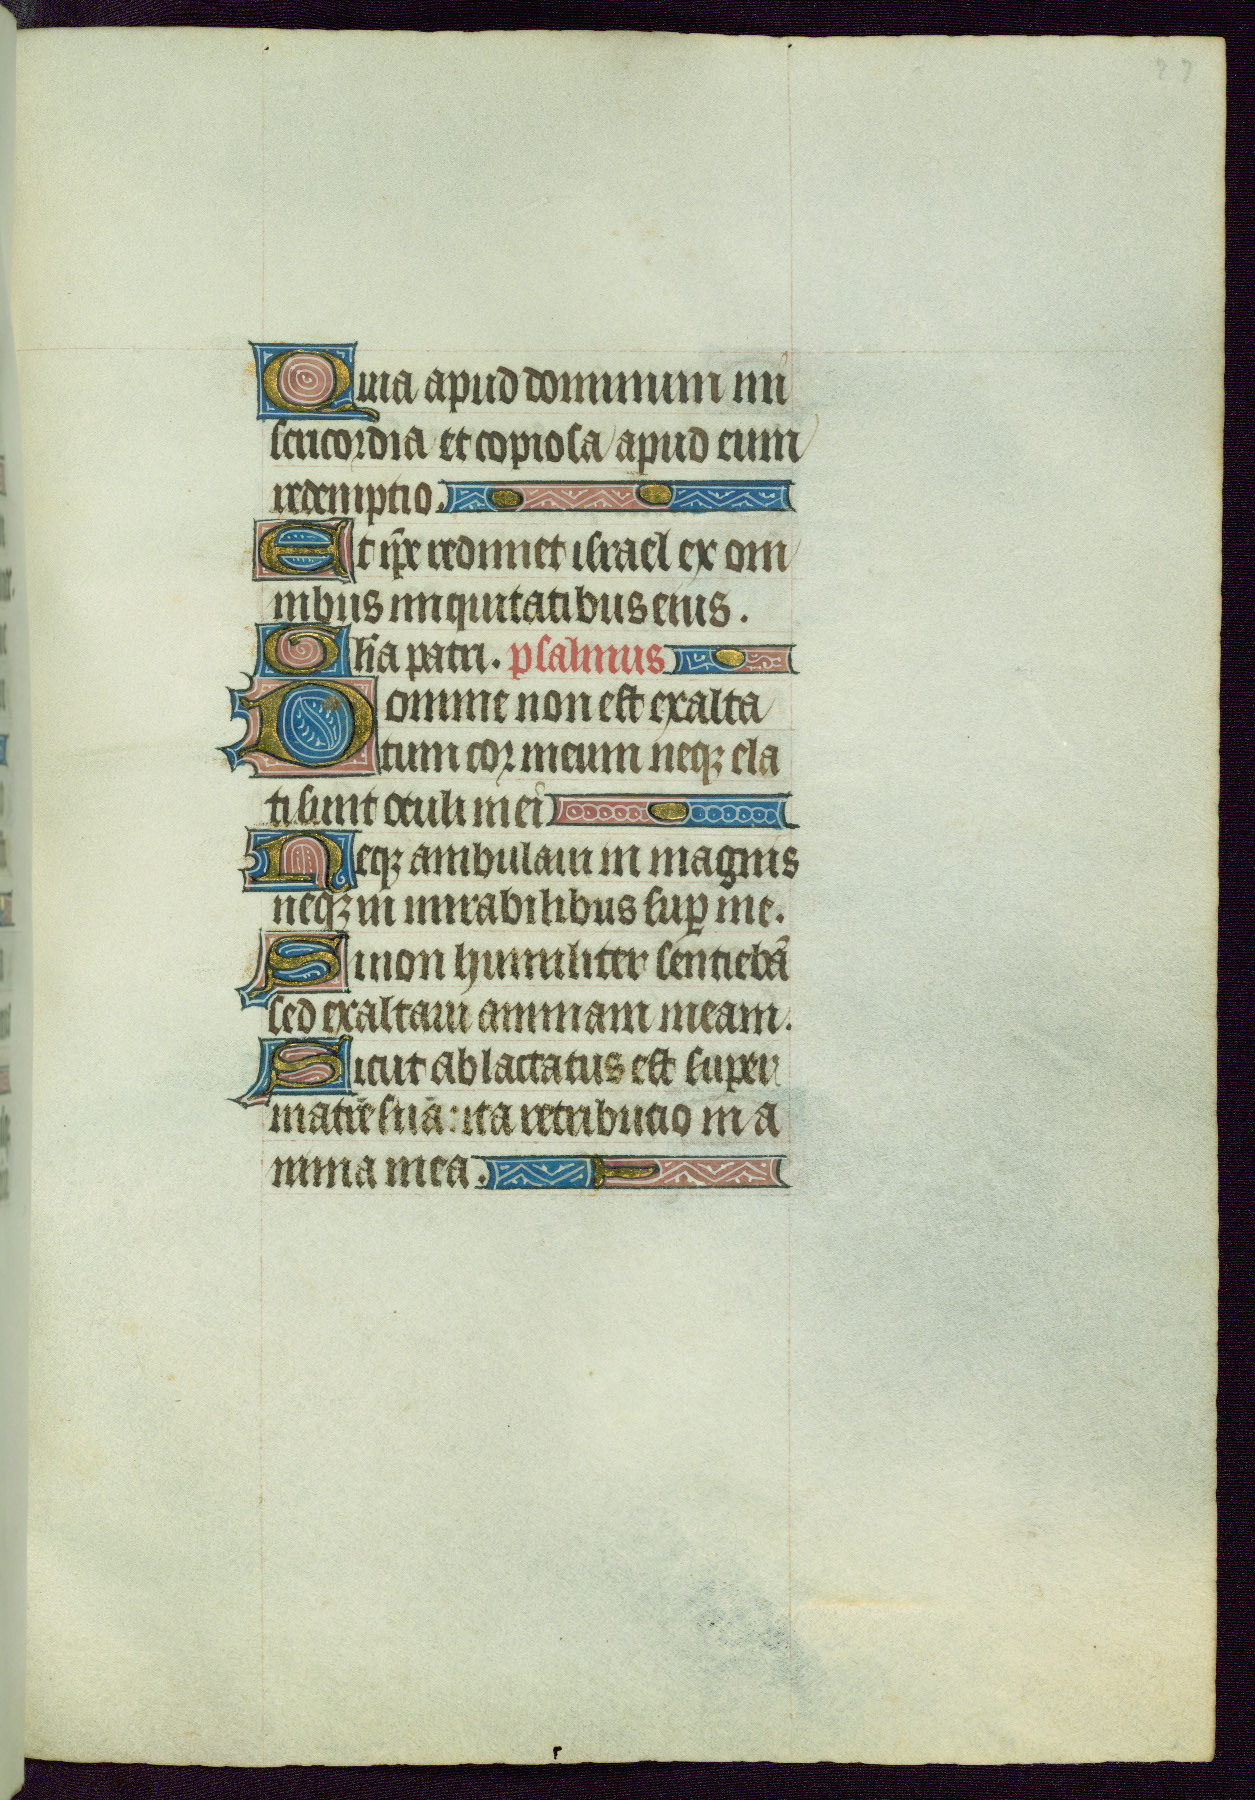 Quia apud dominum mi
sericordia et copiosa apud eum
redemptio.
Et ip̄e redimet israel ex om
nibus iniquitatibus eius.
Gl̄ia patri. psalmus
Domine non est exalta
tum cor meum neqꝫ ela
ti sunt oculi mei
Neqꝫ ambulaui in magnis
neqꝫ in mirabilibus suꝑ me.
Si non humiliter sentiebā
sed exaltaui animam meam.
Sicut ablactatus est super
matrē suā: ita retributio in a
nima mea.